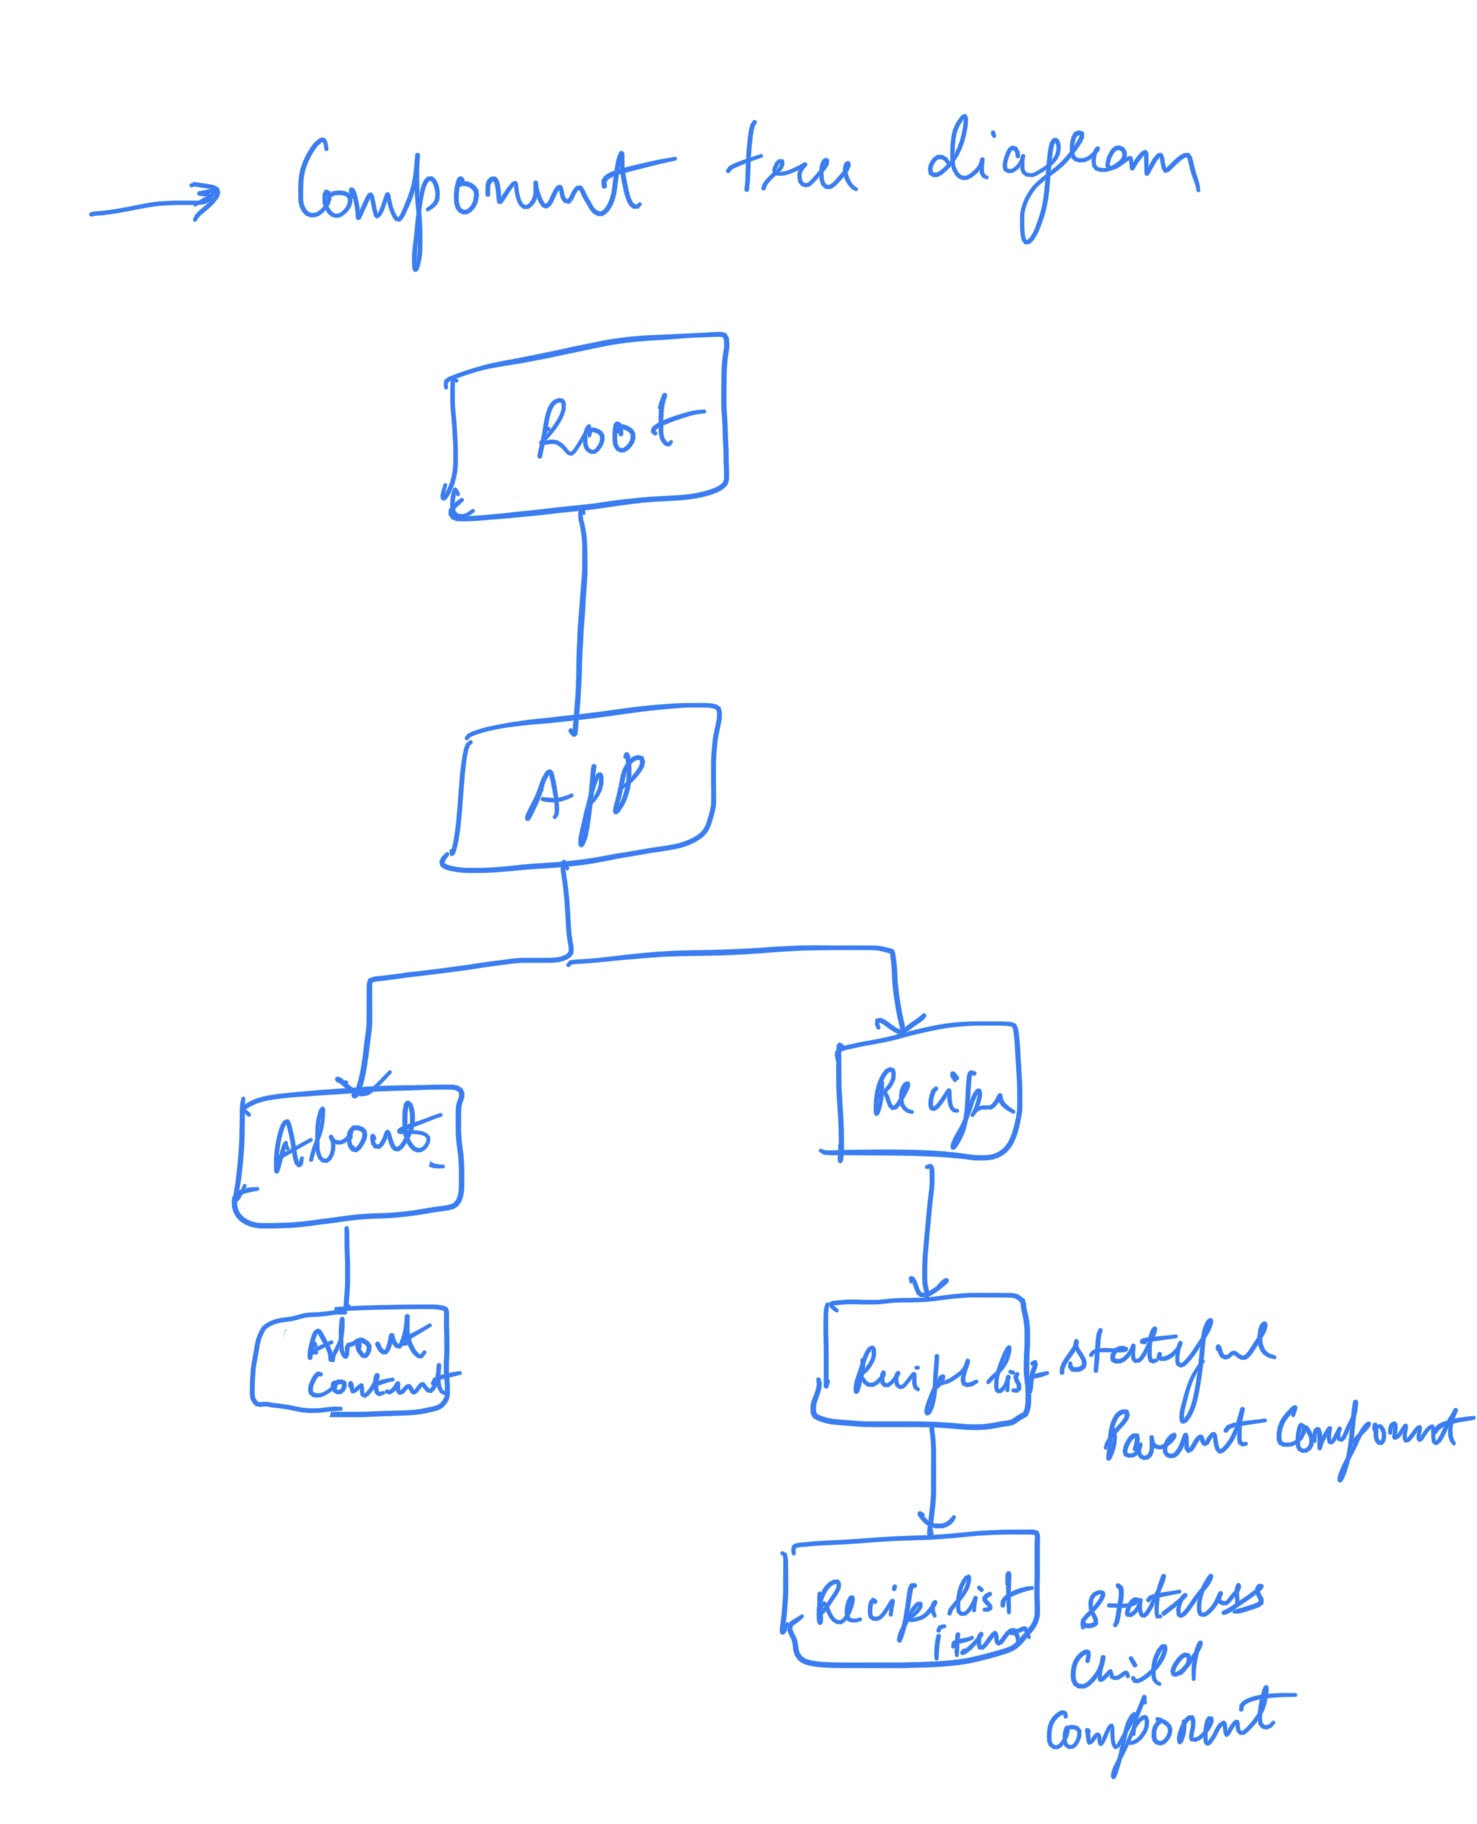 Component tree diagram
Root
App
About
Recipe
About
Content
Recipe list
Stateful
Parent Component
Recipe list
item
Stateless
Child
Component